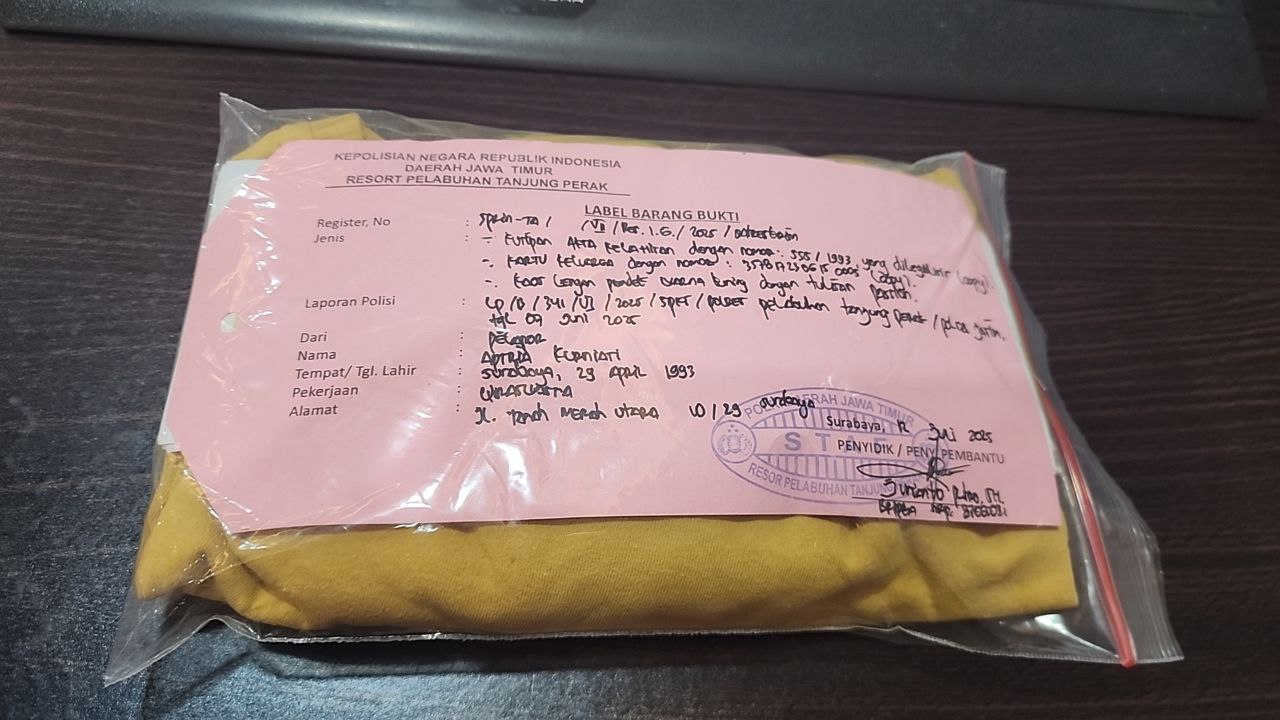 KEPOLISIAN NEGARA REPUBLIK INDONESIA
DAERAH JAWA TIMUR
RESORT PELABUHAN TANJUNG PERAK
LABEL BARANG BUKTI
Register, No : / /VII / Res. 1.6. / 2025 /
Jenis : -. Kutipan AKTA KELAHIRAN dengan nomor : 555 / 1993, yang dilegalisir (copy).
-. KARTU KELUARGA dengan nomor : (copy).
-. Kaos lengan pendek warna kuning dengan tulisan
Laporan Polisi : LP / B / 341 / VI / 2025 / SPKT / POLRES pelabuhan tanjung perak / polda jatim,
tgl 09 Juni 2025
Dari : pelapor
Nama : KURNIATI
Tempat/ Tgl. Lahir : Surabaya, 29 APRIL 1993
Pekerjaan : WIRASWASTA
Alamat : Jl. Tanah MERAH UTARA 10 / 29 Surabaya
Surabaya, 12 Juli 2025
PENYIDIK / PENY PEMBANTU
DAERAH JAWA TIMUR
RESOR PELABUHAN TANJUNG